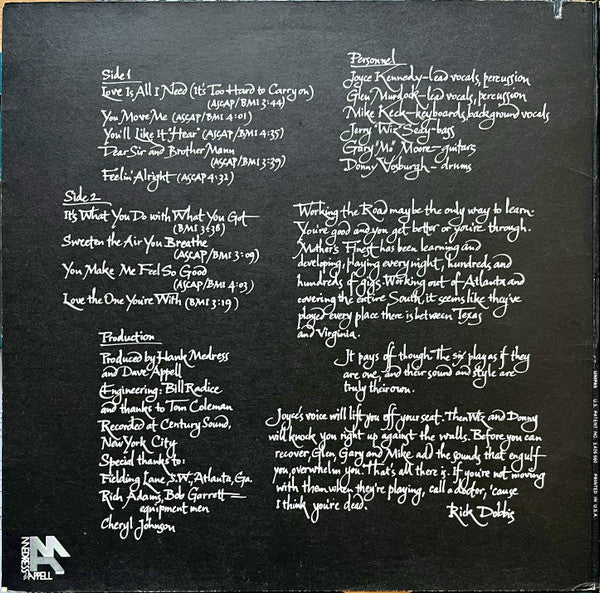 Side 1
Love Is All I Need (It's Too Hard to Carry on)
(ASCAP/BMI 3:44)
You Move Me (ASCAP/BMI 4:01)
You'll Like It "Hear" (ASCAP/BMI 4:35)
Dear Sir and Brother Mann
(ASCAP/BMI 3:39)
Feelin' Alright (ASCAP 4:32)
Side 2
It's What You Do with What You Got
(BMI 3:38)
Sweeten the Air You Breathe
(ASCAP/BMI 3:09)
You Make Me Feel So Good
(ASCAP/BMI 4:03)
Love the One You're With (BMI 3:19)
Production
Produced by Hank Medress
and Dave Appell
Engineering: Bill Radice
and thanks to Tom Coleman
Recorded at Century Sound,
New York City
Special thanks to:
Fielding Lane, S.W., Atlanta, Ga.
Rich Adams, Bob Garrott—
equipment men
Cheryl Johnson
MEDRESS
APPELL
Personnel
Joyce Kennedy-lead vocals, percussion
Glen Murdock-lead vocals, percussion
Mike Keck-keyboards, background vocals
Jerry "Wiz" Seay-bass
Gary "Mo" Moore-guitars
Donny Vosburgh-drums
Working the Road may be the only way to learn.
You're good and you get better or you're through.
Mother's Finest has been learning and
developing, playing every night, hundreds and
hundreds of gigs. Working out of Atlanta and
covering the entire South, it seems like they've
played every place there is between Texas
and Virginia.
It pays off though-The six play as if they
are one, and their sound and style are
truly their own.
Joyce's voice will lift you off your seat. Then Wiz and Donny
will knock you right up against the walls. Before you can
recover, Glen, Gary and Mike add the sounds that engulf
you, overwhelm you. That's all there is. If you're not moving
with them when they're playing, call a doctor, 'cause
I think you're dead.
Rick Dobbis
UNIPAK U.S. PATENT NO. 3426960 PRINTED IN U.S.A.